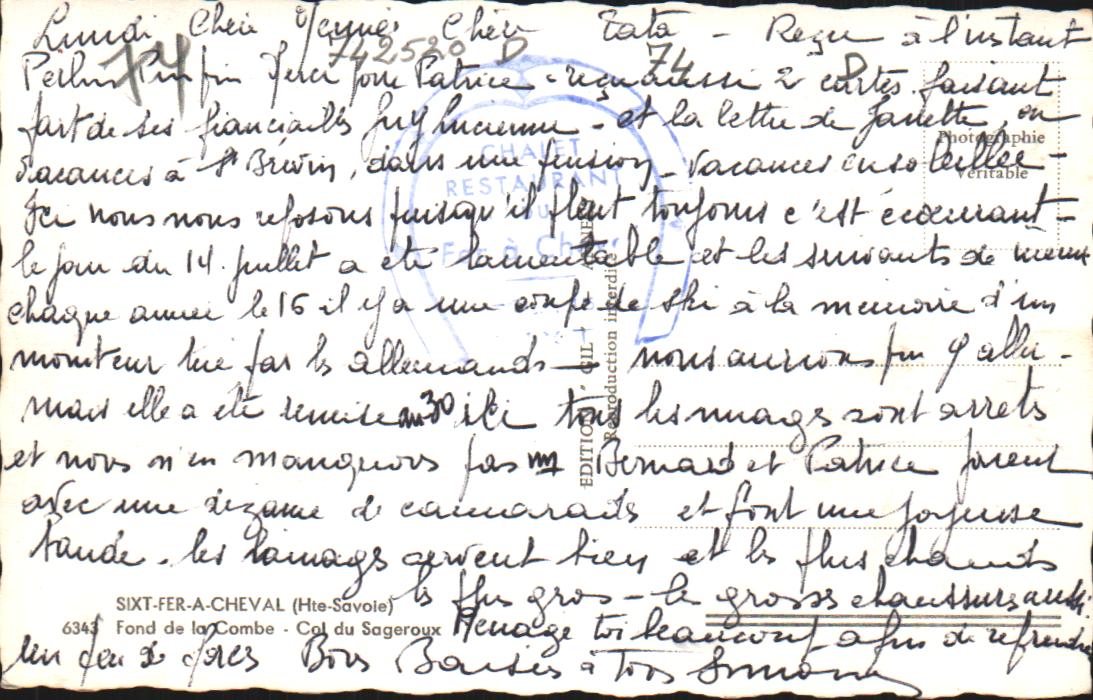 Lundi Chère Chère Tata - Reçu à l'instant
742580 D 74 D
74
Perlin Pinpin pour Patrice - reçu aussi 2 cartes faisant
part de ses fiançailles Guy Lucienne - et la lettre de Janette, en
Photographie
Véritable
vacances à St Brévin, dans une pension - vacances ensoleillée -
CHALET
RESTAURANT
DU
Fer à Cheval
Ici nous nous reposons puisqu'il pleut toujours c'est écoeurant -
le jour du 14 juillet a été lamentable et les suivants de même
chaque année le 16 il y a une coupe de ski à la mémoire d'un
moniteur tué par les allemands - nous aurions pu y aller -
mais elle a été remise au 30 ici tous les nuages sont arrets
et nous n'en manquons pas Bernard et Patrice jouent
EDITIONS
Reproduction interdite
avec une dizaine de camarads et font une joyeuse
bande - les lainages servent bien et les plus chauds
les plus gros - les grosses chaussures aussi
SIXT-FER-A-CHEVAL (Hte-Savoie)
6343 Fond de la Combe - Col du Sageroux
Menage toi beaucoup afin de reprendre
un peu de forces Bons Baisers à Tous Simone